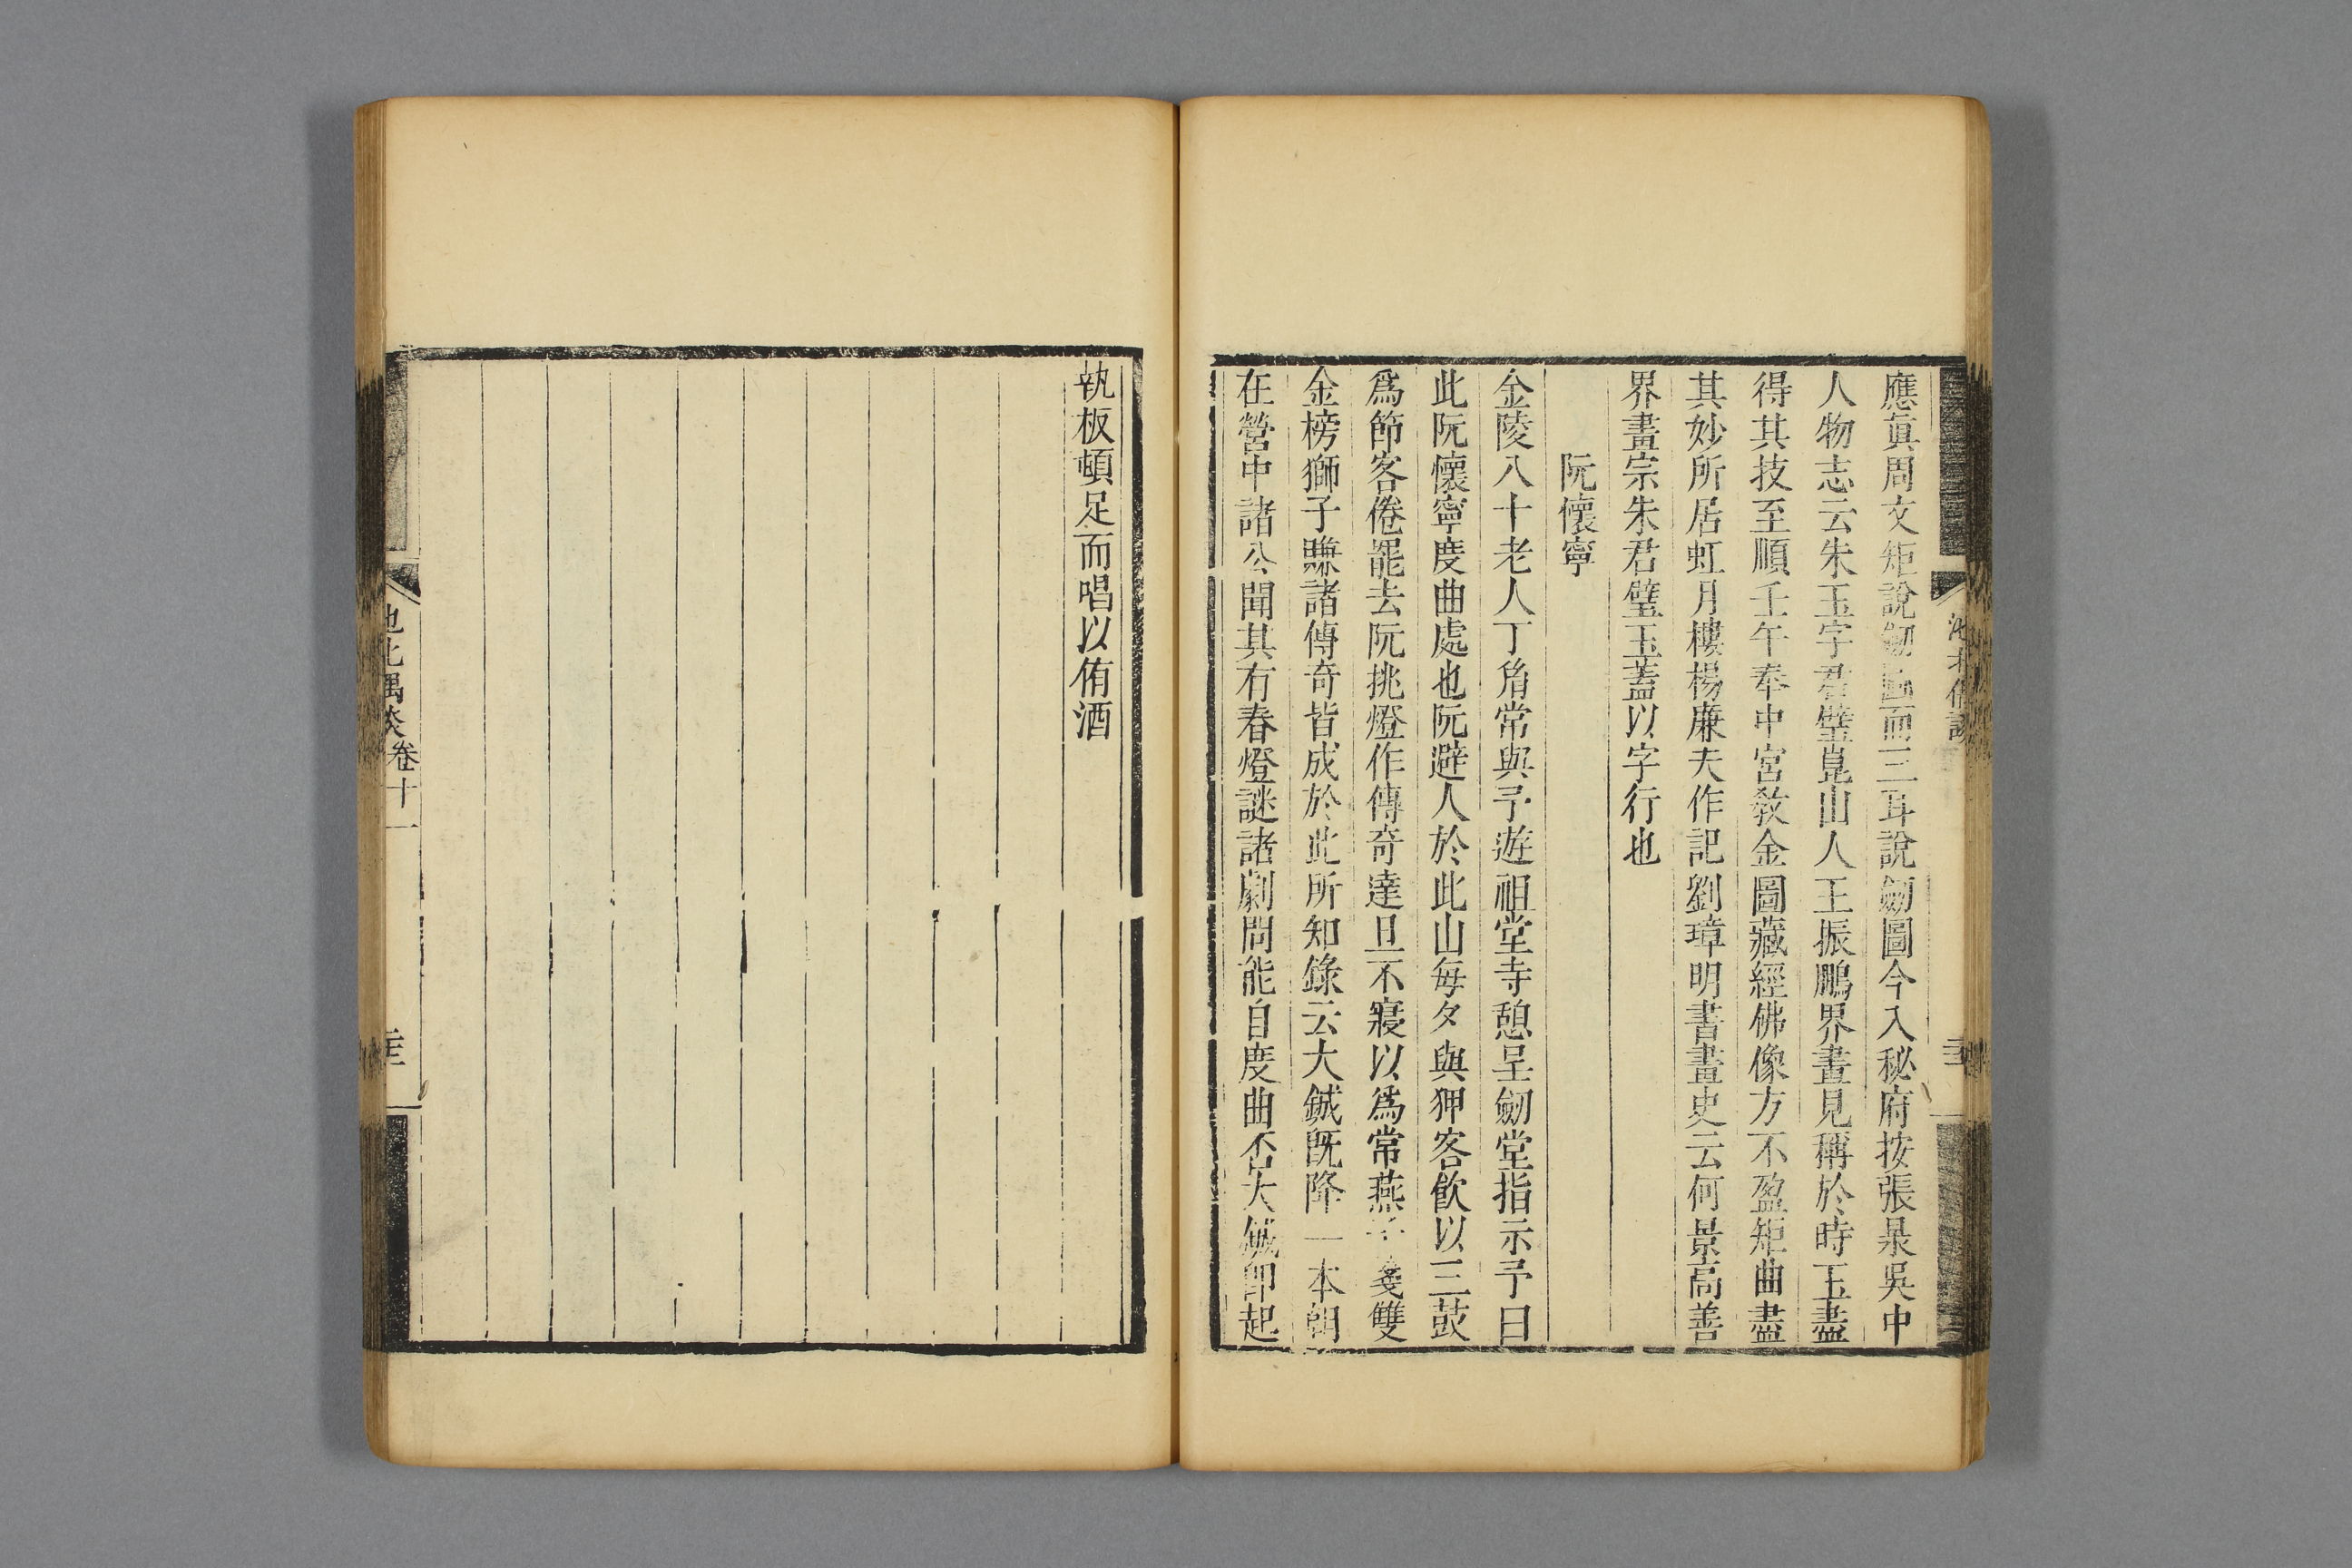 應眞周文矩說劒圖而三耳說劒圖今入秘府按張泉吳中
人物志云朱玉字君璧崑山人王振鵬界畫見稱於時玉盡
得其技至順壬午奉中宮敎金圖藏經佛像方不盈矩曲盡
其妙所居虹月樓楊廉夫作記劉璋明書畫史云何景高善
界畫宗朱君璧玉蓋以字行也
阮懷寧
金陵八十老人丁胤常與予遊祖堂寺憩呈劒堂指示予曰
此阮懷寧度曲處也阮避人於此山每夕與狎客飮以三鼓
爲節客倦罷去阮挑燈作傳奇達旦不寢以爲常燕子箋雙
金榜獅子賺諸傳奇皆成於此所知錄云大鋮旣降 本朝
在營中諸公聞其有春燈謎諸劇問能自度曲否大鋮卽起
執板頓足而唱以侑酒
池北偶談卷十一